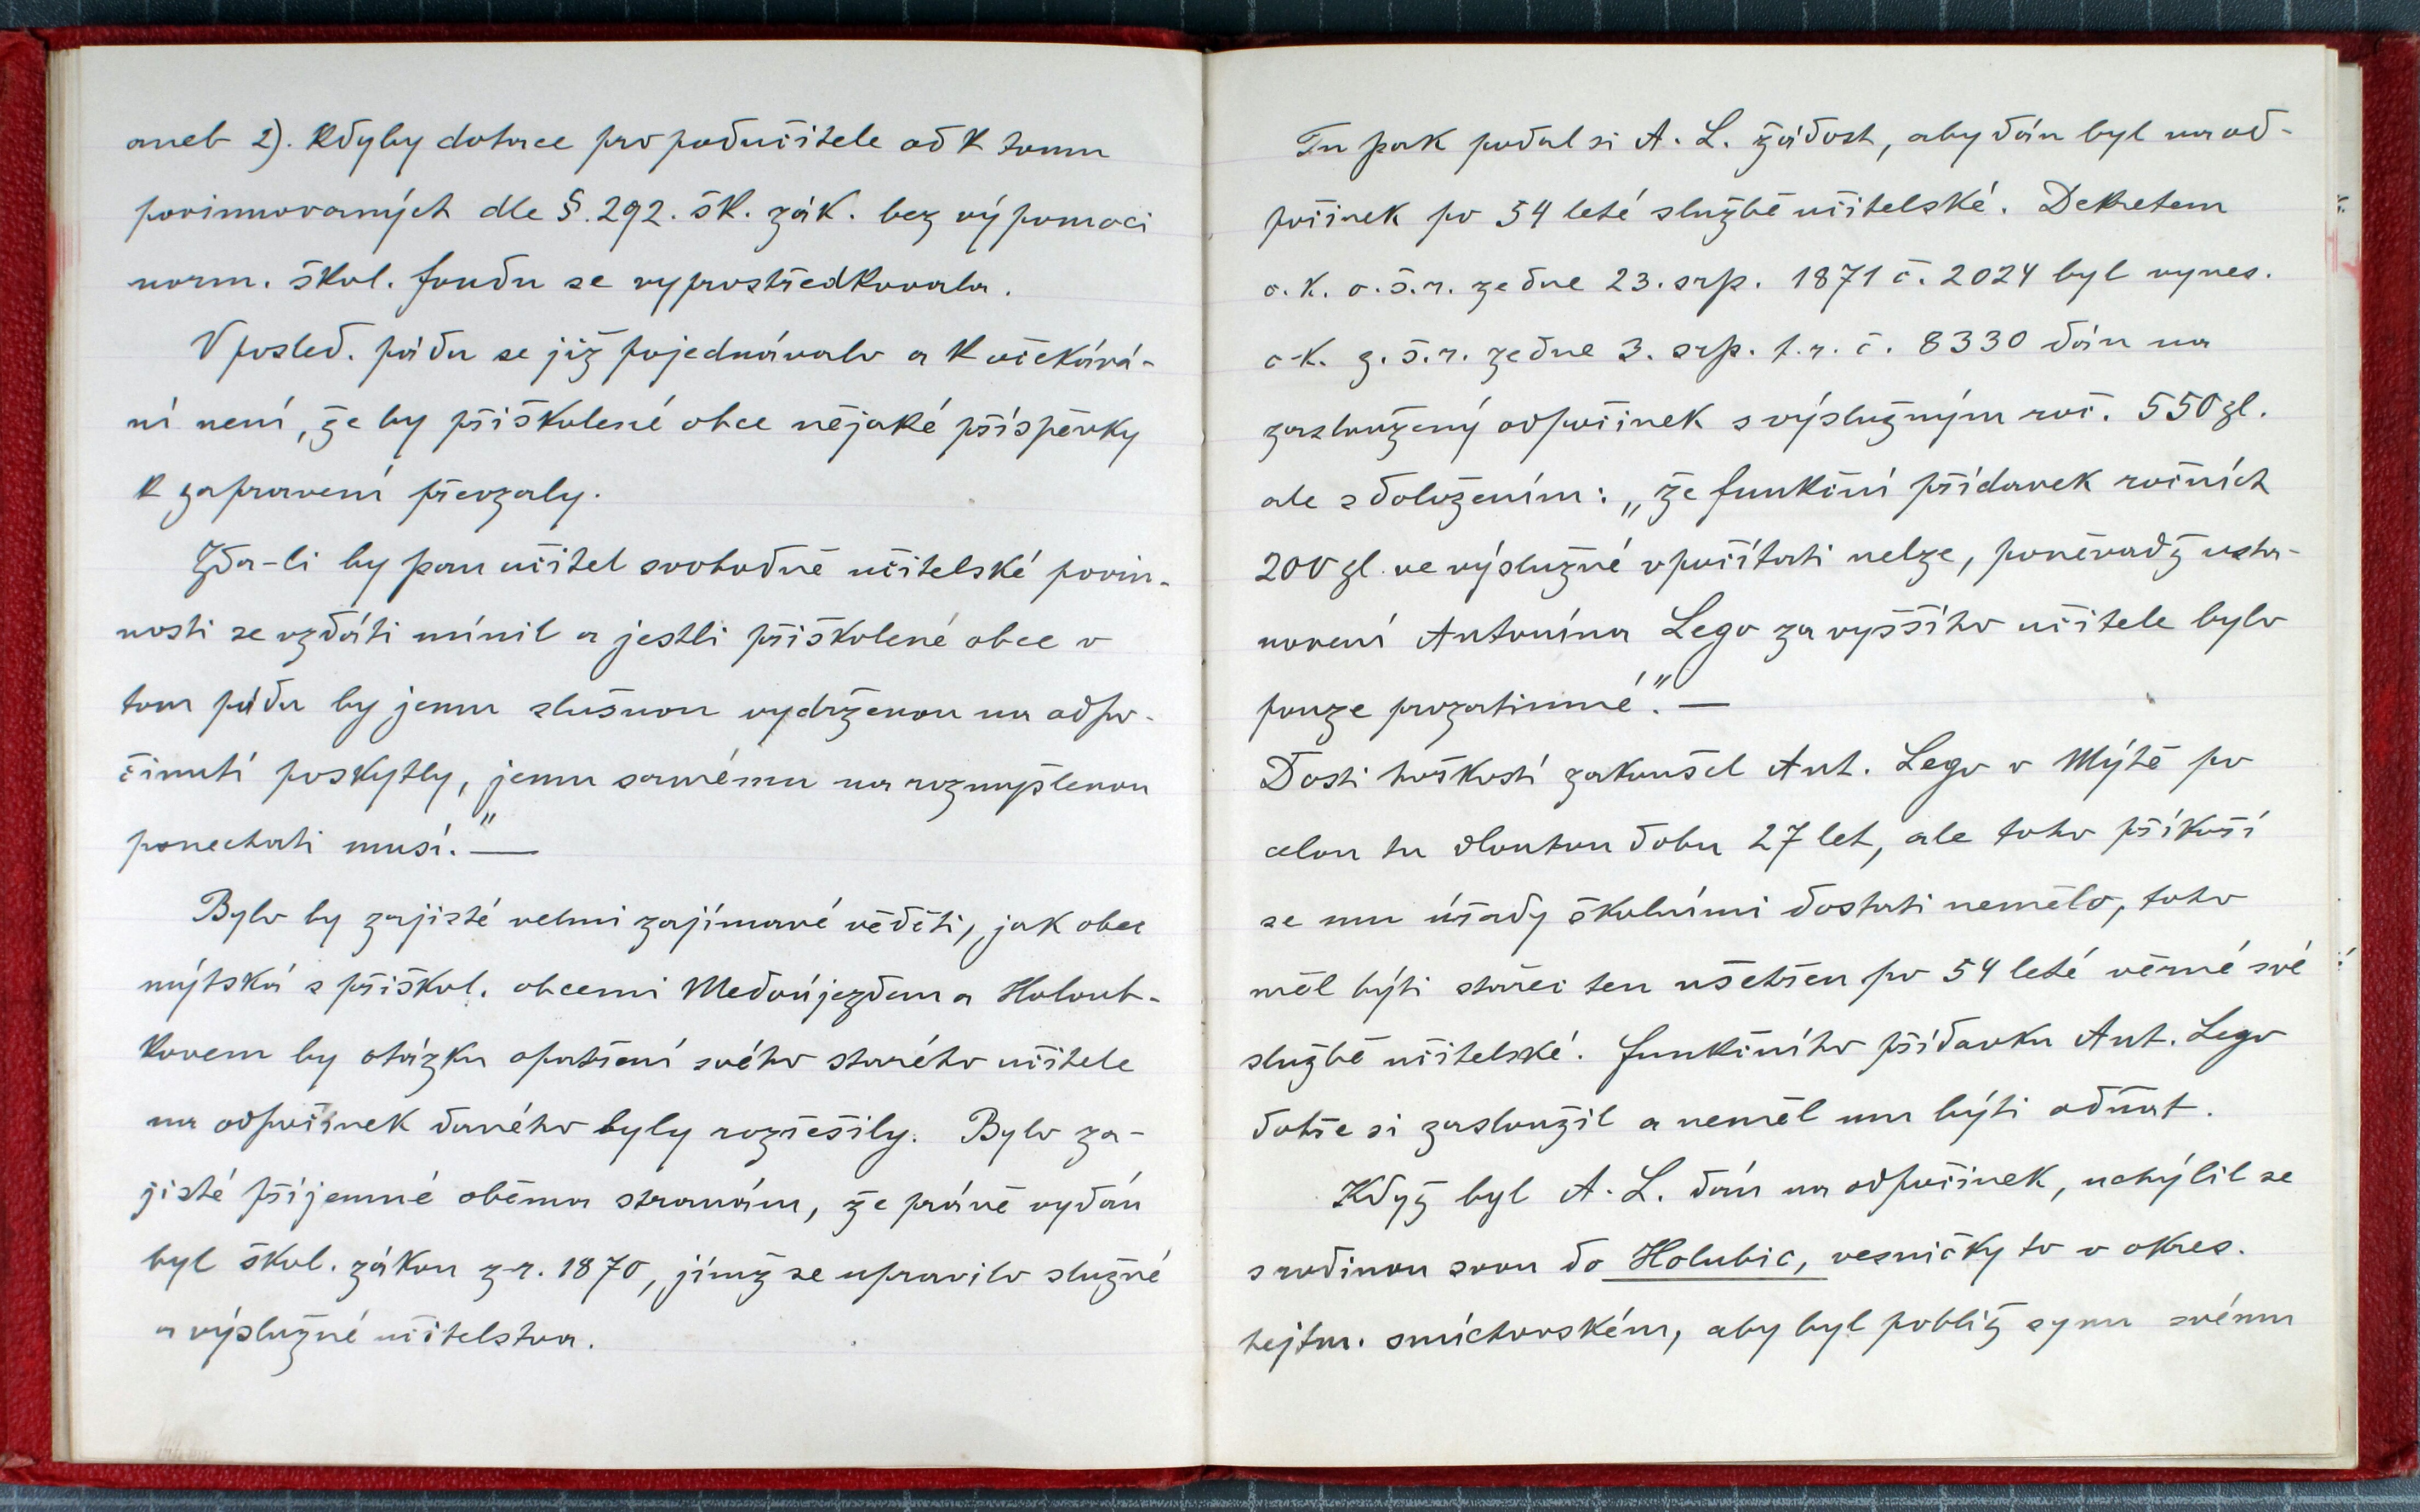 aneb 2). Kdyby dotace pro podučitele od k tomu
povinnovaných dle §. 292. šk. zák. bez výpomoci
norm. škol. fondu se vyprostředkovala.
V posled. pádu se již pojednávalo a k očekává-
ní není, že by přiškolené obce nějaké příspěvky
k zapravení převzaly.
Zda-li by pan učitel svobodně učitelské povin-
nosti se vzdáti mínil a jestli přiškolené obce v
tom pádu by jemu slušnou vydrženou na odpo-
činutí poskytly, jemu samému na rozmyšlenou
ponechati musí." —
Bylo by zajisté velmi zajímavé věděti, jak obec
mýtská s přiškol. obcemi Medoújezdem a Holoub-
kovem by otázku opatření svého starého učitele
na odpočinek daného byly rozřešily. Bylo za-
jisté příjemné oběma stranám, že právě vydán
byl škol. zákon z r. 1870, jímž se upravilo služné
a výslužné učitelstva.
Tu pak podal si A. L. žádost, aby dán byl na od-
počinek po 54 leté službě učitelské. Dekretem
c. k. o. š. r. ze dne 23. srp. 1871 č. 2024 byl vynes.
c. k. z. š. r. ze dne 3. srp. t. r. č. 8330 dán na
zasloužený odpočinek s výslužným roč. 550 zl.
ale s doložením: „že funkční přídavek ročních
200 zl. ve výslužné vpočítati nelze, poněvadž usta-
novení Antonína Lego za vyššího učitele bylo
pouze prozatimné." —
Dosti hořkostí zakoušel Ant. Lego v Mýtě po
celou tu dlouhou dobu 27 let, ale toho příkoří
se mu úřady školními dostati nemělo, toho
měl býti stařec ten ušetřen po 54 leté věrné své
službě učitelské. Funkčního přídavku Ant. Lego
dobře si zasloužil a neměl mu býti odňat.
Když byl A. L. dán na odpočinek, uchýlil se
s rodinou svou do Holubic, vesničky to v okres.
hejtm. smíchovském, aby byl poblíž synu svému